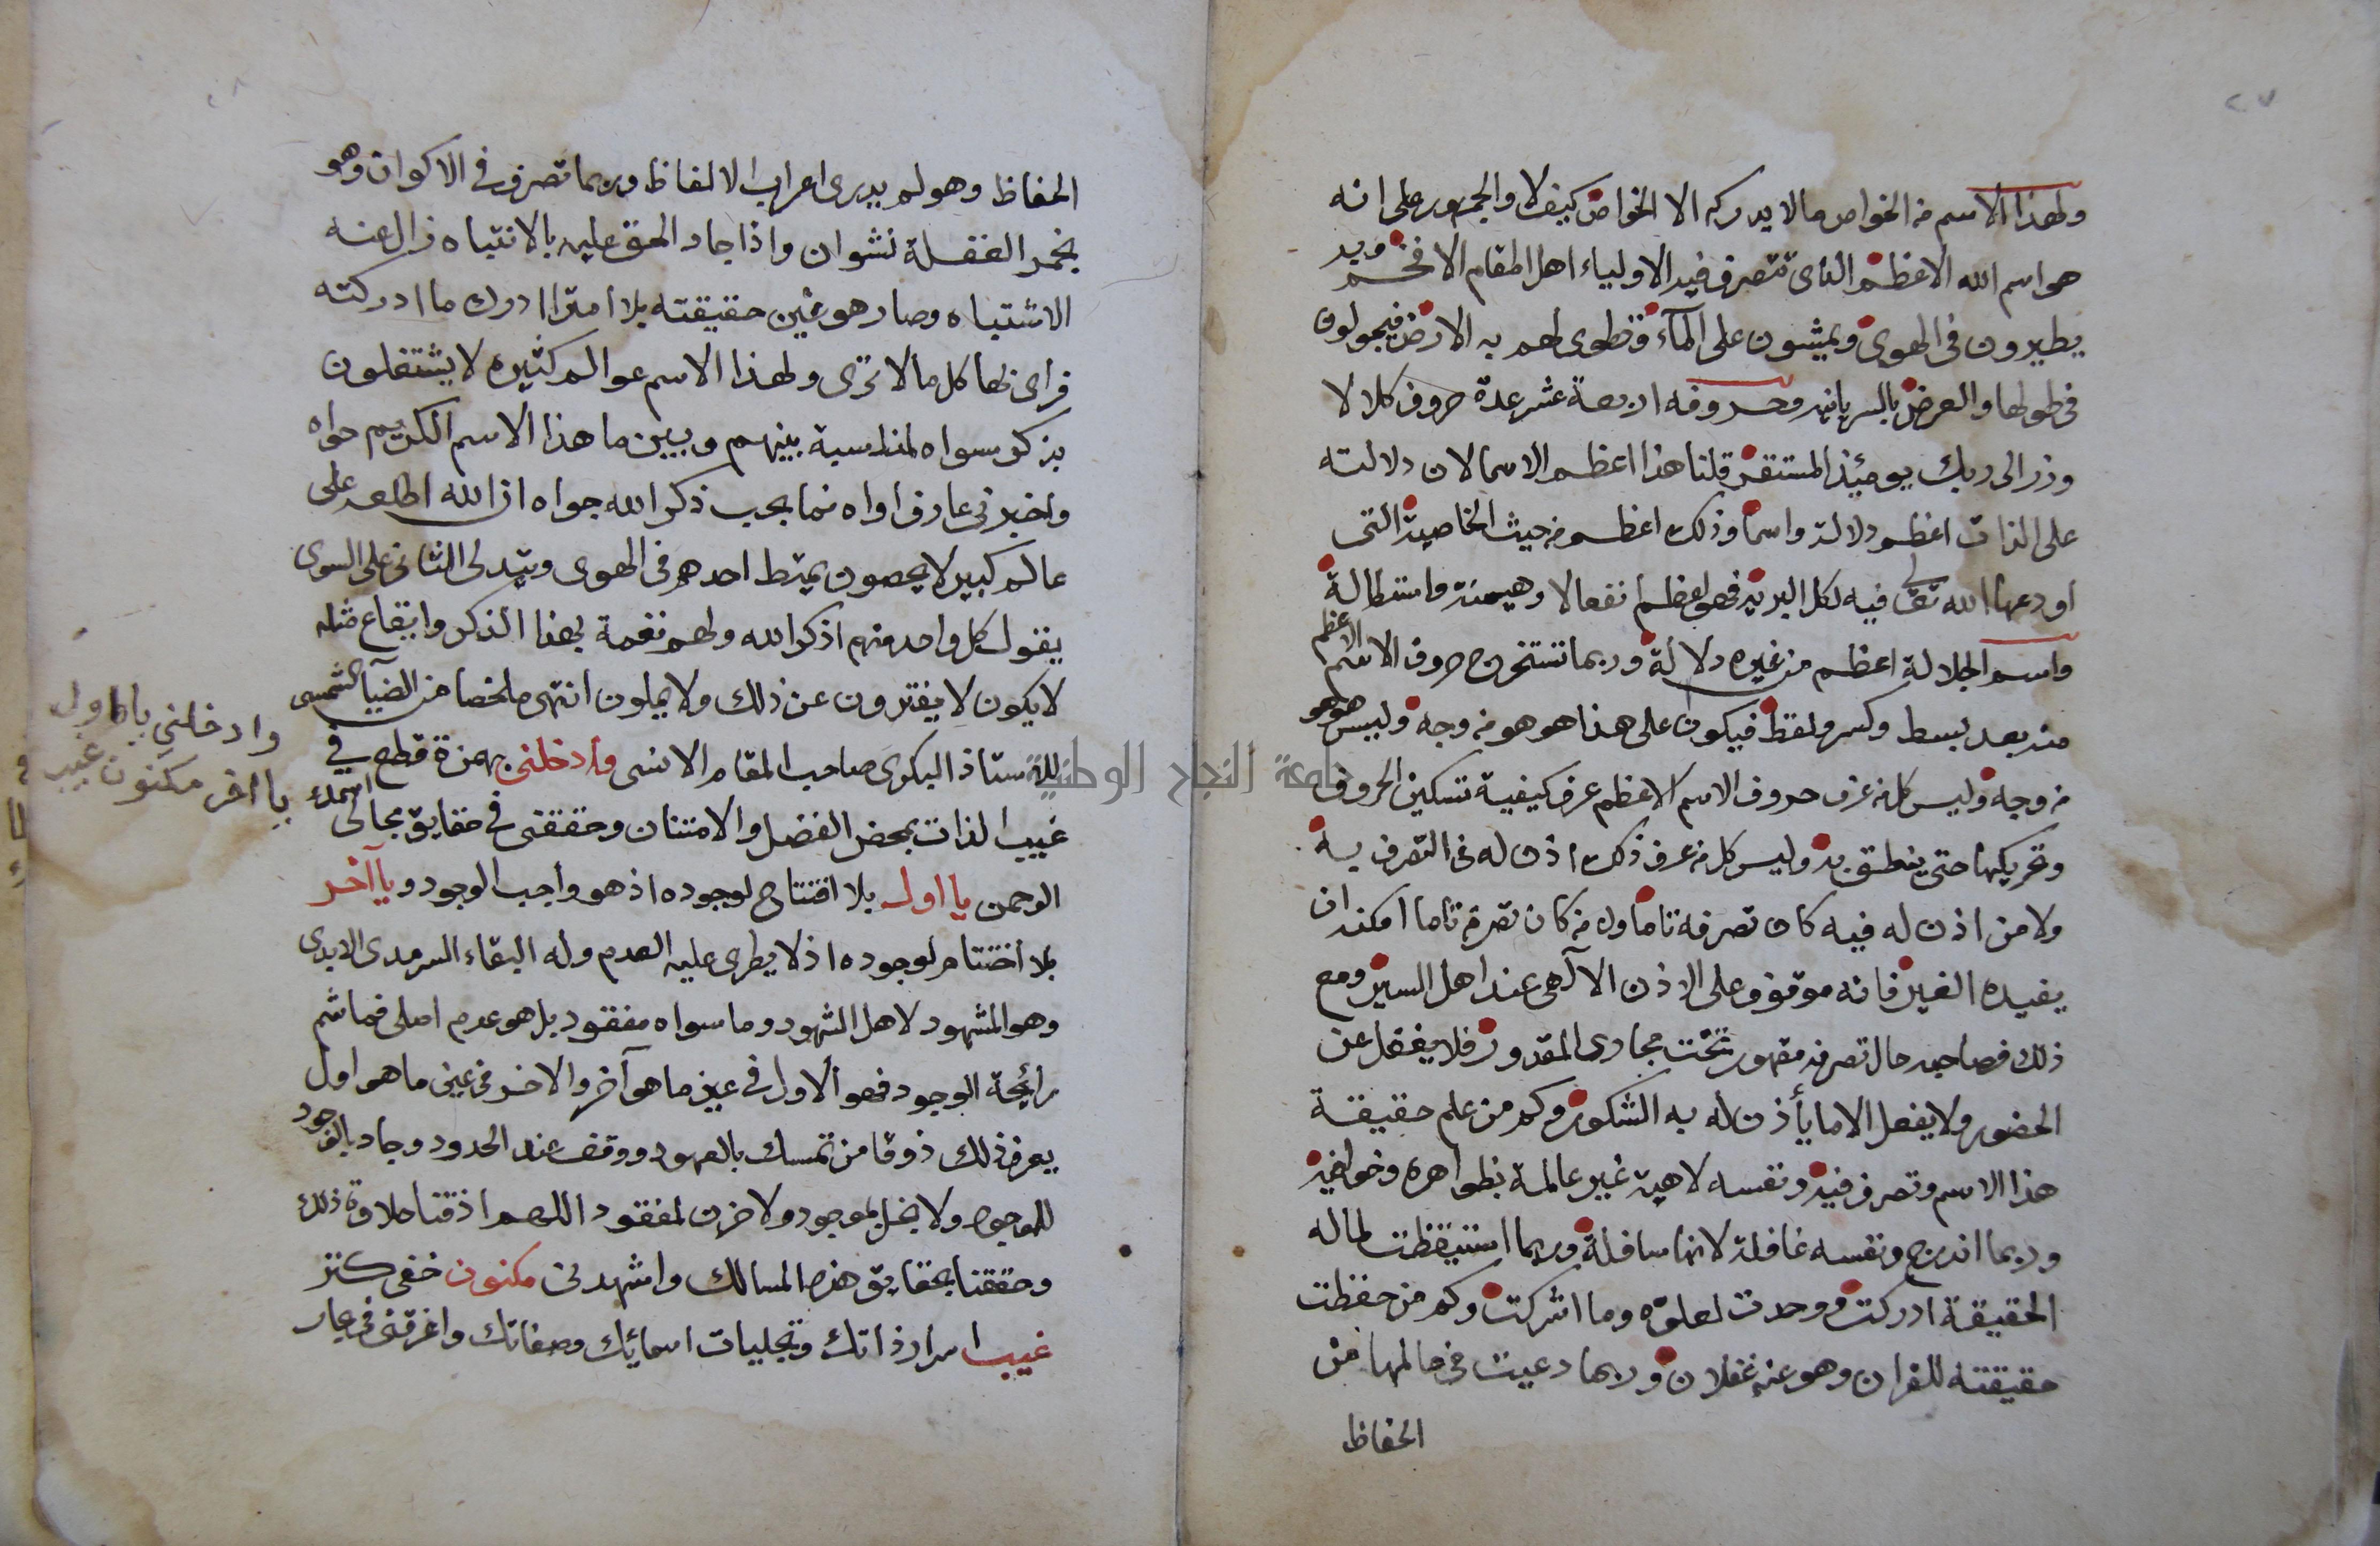 ٢٧
ولهذا الاسم من الخواص ما لا يدركه الا الخواص كيف لا والجمهور على انه
هو اسم الله الاعظم الذي تتصرف فيه الاولياء اهل المقام الافخم وبه
يطيرون في الهوى ويمشون على المآء وتطوى لهم به الارض فيجولون
في طولها والعرض بالسريانيه وحروفه اربعة عشر عدة حروف كلا لا
وزر الى ربك يومئذ المستقر قلنا هذا اعظم الاسما لان دلالته
على الذات اعظم دلالة واسما وذلك اعظم من حيث الخاصية التي
اودعها الله تعالى فيه لكل البريه فهو اعظم انفعالا وهيمنة واستطالة
واسم الجلالة اعظم من غيره دلالة وربما تستخرج حروف الاسم الاعظم
منه بعد بسط وكسر ولقط فيكون على هذا هو هو من وجه وليس هو هو
من وجه وليس كل من عرف حروف الاسم الاعظم عرف كيفية تسكين الحروف
وتحريكها حتى ينطق به وليس كل من عرف ذلك اذن له في التصرف به
ولا من اذن له فيه كان تصرفه تاما ولا من كان تصرفه تاما امكنه ان
يفيده الغير فانه موقوف على الاذن الآلهي عند اهل السير ومع
ذلك فصاحبه حال تصرفه مقهور تحت مجاري المقدور فلا يغفل عن
الحضور ولا يفعل الا ما يأذن له به الشكور وكم من علم حقيقة
هذا الاسم وتصرف فيه ونفسه لاهية غير عالمة بظواهره وخوافيه
وربما اندرج ونفسه غافلة لانها سافلة وربما استيقظت لما له
الحقيقة ادركت ووحدت لعلوه وما اشركت وكم من حفظت
حقيقته للقران وهو عنه غفلان وربما دعيت في عالمها من
الحفاظ
٢٨
الحفاظ وهو لم يدرى اعراب الالفاظ وربما تصرف في الاكوان وهو
بخمر الغفلة نشوان واذا جاد الحق عليه بالانتباه زال عنه
الاشتباه وصار هو عين حقيقته بلا امترا ادرك ما ادركته
فراى بها كل ما لا ترى ولهذا الاسم عوالم كثيره لا يشتغلون
بذكر سواه لمناسبة بينهم وبين ما هذا الاسم الكريم حواه
واخبرني عارف اواه مما بحب ذكر الله جواه ان الله اطلعه على
عالم كبير لا يحصون يمتط احدهم في الهوى ويتدلى الثاني على السوى
يقول كل واحد منهم اذكر الله ولهم نغمة بهذا الذكر وايقاع مثله
لا يكون لا يفترون عن ذلك ولا يملون انتهى ملخصا من الضيآ الشمسى
للاستاذ البكرى صاحب المقام الانسى وأدخلني بهمزة قطع في
غيب الذات بمحض الفضل والامتنان وحققني في حقايق مجالى اسمك
الرحمن يا اول بلا افتتاح لوجوده اذ هو واجب الوجود ويا آخر
بلا اختتام لوجوده اذ لا يطرى عليه العدم وله البقاء السرمدى الابدى
وهو المشهود لاهل الشهود وما سواه مفقود بل هو عدم اصلى فما شم
رائحة الوجود فهو الاول في عين ما هو آخر والاخر في عين ما هو اول
يعرف ذلك ذوقا من تمسك بالعهود ووقف عند الحدود وجاد بالموجود
للموجود ولا بخل بموجود ولا حزن لمفقود اللهم اذقنا حلاوة ذلك
وحققنا بحقايق هذه المسالك واشهدني مكنون خفي كنز
غيب اسرار ذاتك وتجليات اسمائك وصفاتك واغرقني في بحار
وادخلني يا اول
يا اخر مكنون غيب
جامعة النجاح الوطنية